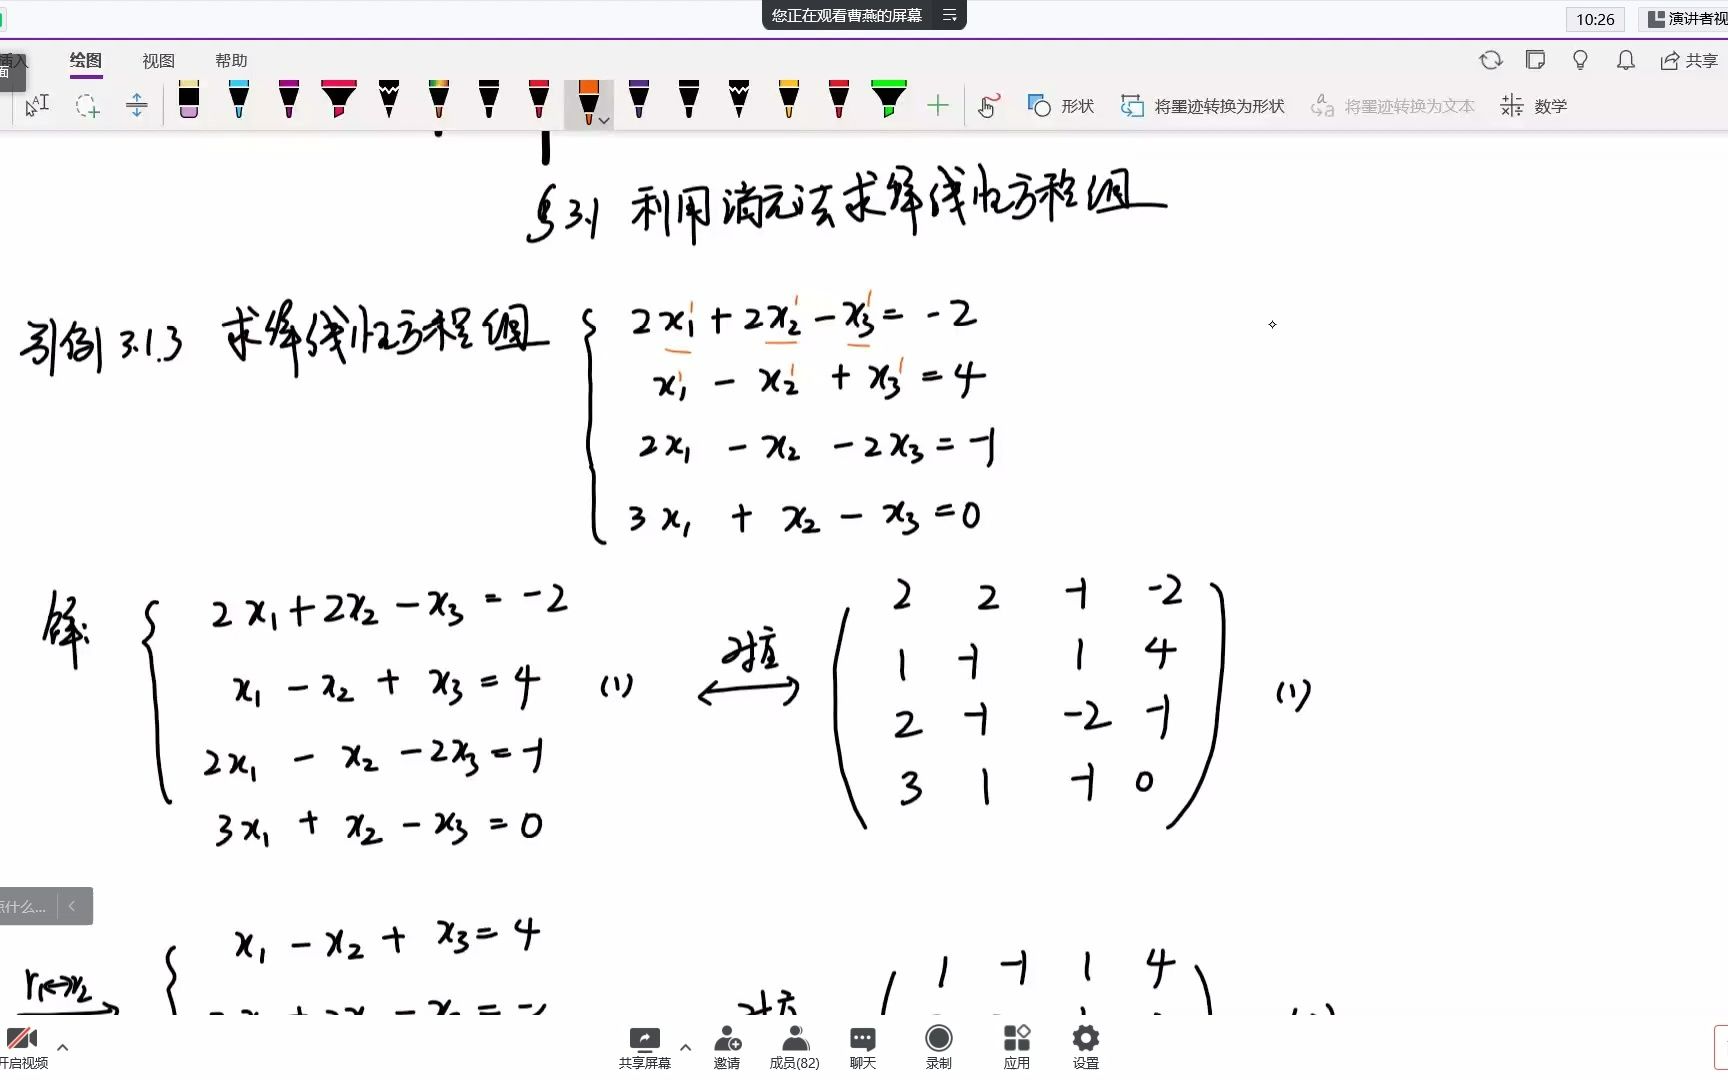 您正在观看曹燕的屏幕
10:26
演讲者视
插入 绘图 视图 帮助
共享
面
形状 将墨迹转换为形状 将墨迹转换为文本 数学
§3.1 利用消元法求解线性方程组
引例 3.1.3 求解线性方程组
2x₁ + 2x₂ - x₃ = -2
x₁ - x₂ + x₃ = 4
2x₁ - x₂ - 2x₃ = -1
3x₁ + x₂ - x₃ = 0
解:
2x₁ + 2x₂ - x₃ = -2
x₁ - x₂ + x₃ = 4 (1)
2x₁ - x₂ - 2x₃ = -1
3x₁ + x₂ - x₃ = 0
对应
2 2 -1 -2
1 -1 1 4
2 -1 -2 -1
3 1 -1 0
(1)
什么...
r₁↔r₂
x₁ - x₂ + x₃ = 4
对应
1 -1 1 4
开启视频 共享屏幕 邀请 成员(82) 聊天 录制 应用 设置